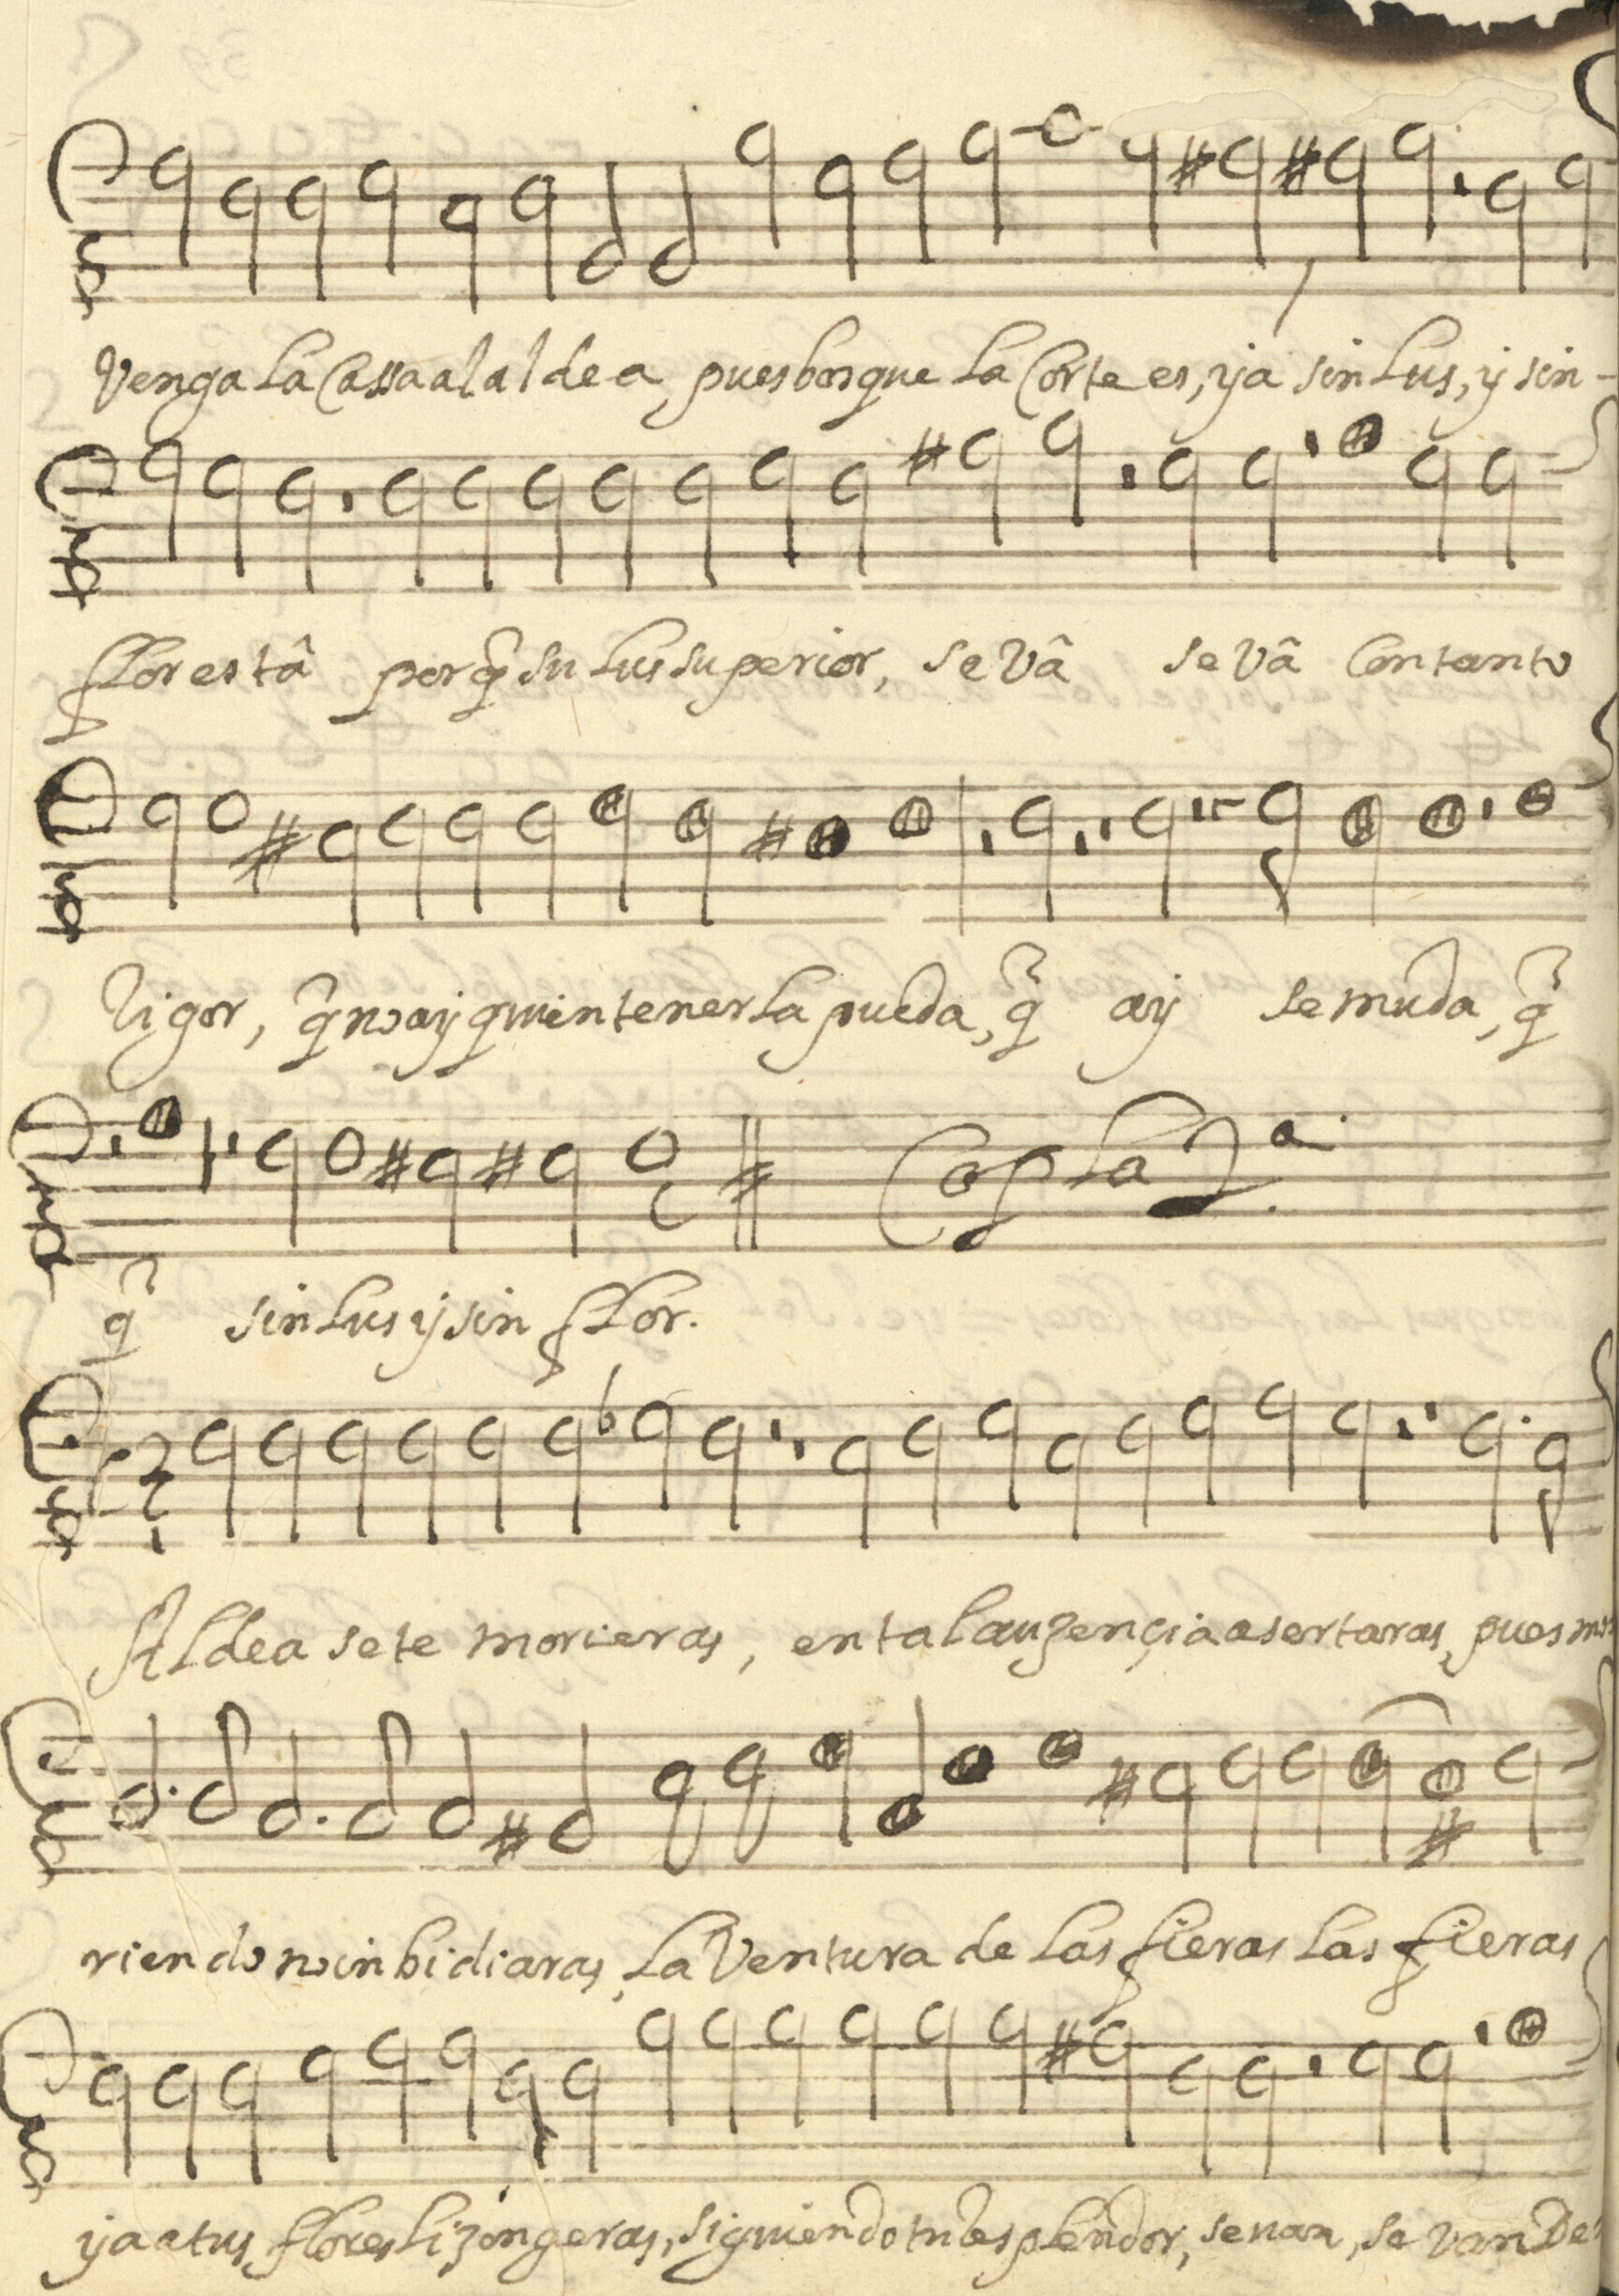 Venga la Cassa al aldea, pues bosque la Corte es, ya sin lus, y sin -
flor está porq̃ su lus superior, se vâ se vâ Con tanto
Rigor, q̃ no ay quien tenerla pueda, q̃ ay se muda, q̃
Copla 2ª.
q̃ sin lus y sin flor.
Aldea se te morieras, en tal auzençia asertaras, pues mo
riendo no inbidiaras, la Ventura de las fieras las fieras
ya a tus flores lizongeras, siguiendo tu esplendor, se uan, se van De